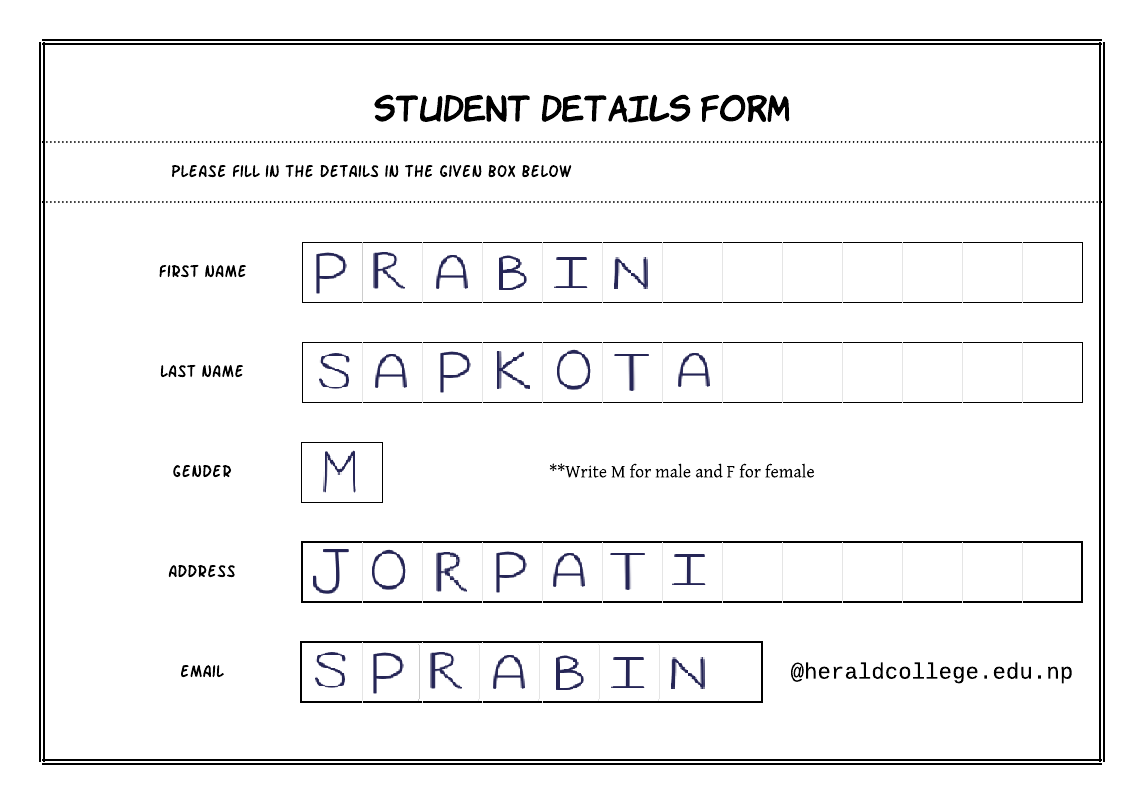 STUDENT DETAILS FORM
PLEASE FILL IN THE DETAILS IN THE GIVEN BOX BELOW
FIRST NAME PRABIN
LAST NAME SAPKOTA
GENDER M **Write M for male and F for female
ADDRESS JORPATI
EMAIL SPRABIN @heraldcollege.edu.np